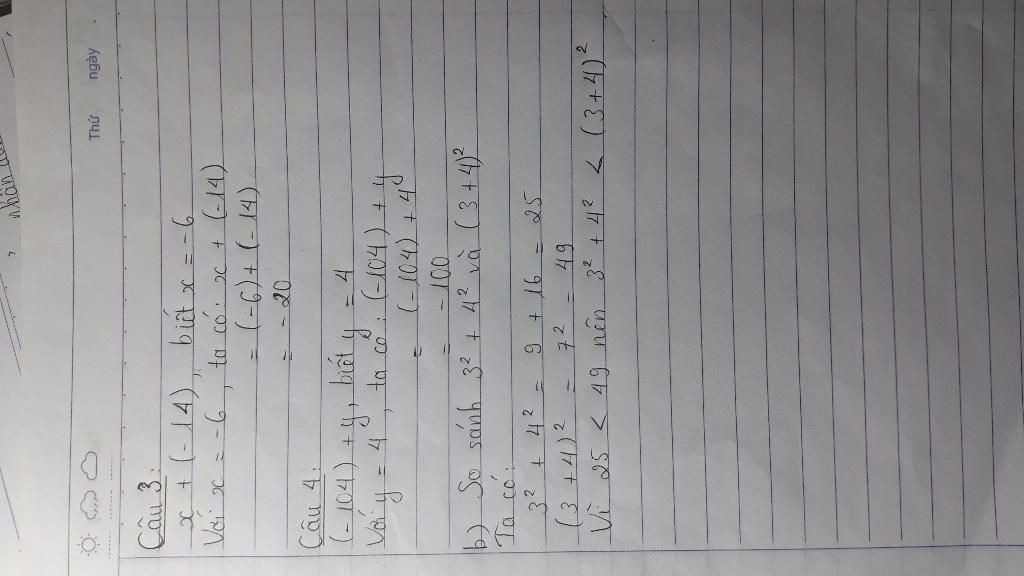 Thứ ngày
Câu 3:
x + (-14), biết x = -6
Với x = -6, ta có: x + (-14)
= (-6) + (-14)
= -20
Câu 4:
(-104) + y, biết y = 4
Với y = 4, ta có: (-104) + y
= (-104) + 4
= -100
b) So sánh 3² + 4² và (3+4)²
Ta có:
3² + 4² = 9 + 16 = 25
(3 + 4)² = 7² = 49
Vì 25 < 49 nên 3² + 4² < (3+4)²